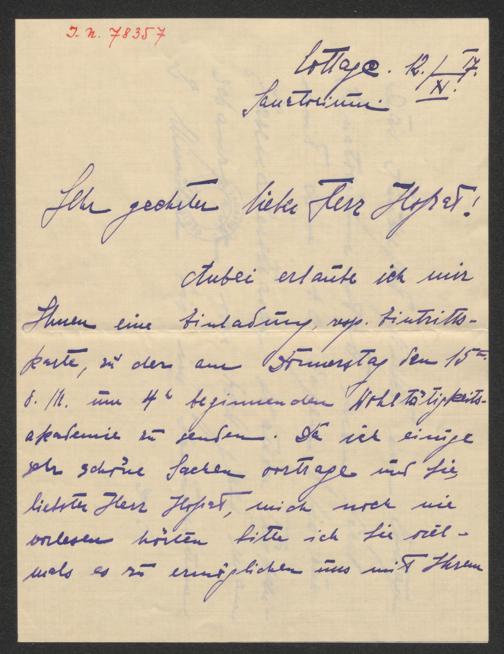 I. N. 78357
Cottage. 12./XI. 17.
Sanatorium.
Sehr geehrter lieber Herr Hofrat!
Anbei erlaube ich mir
Ihnen eine Einladung, resp. Eintritts-
karte, zu der am Donnerstag den 15ten
d. M. um 4h beginnenden Wohltätigkeits-
akademie zu senden. Da ich einige
sehr schöne Sachen vortrage und Sie,
liebster Herr Hofrat, mich noch nie
vorlesen hörten bitte ich Sie viel-
mals es zu ermöglichen uns mit Ihrem